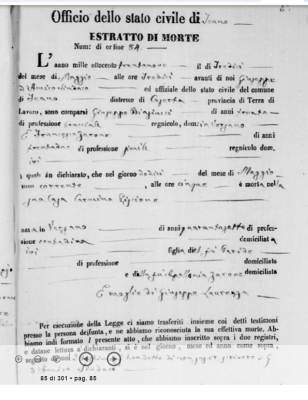 Officio dello stato civile di Teano
ESTRATTO DI MORTE
Num: di ordine 84.
L'anno mille ottocento trentanove il dì Tredici
del mese di Maggio alle ore Tredici avanti di noi Giuseppe
ed uffiziale dello stato civile del comune
di Teano distretto di Caserta provincia di Terra di
Lavoro, sono comparsi Giuseppe di anni trenta
di professione regnicolo, dom: in Versano
E Francesco Zarone di anni
di professione simile regnicolo dom.
ivi
i quali àn dichiarato, che nel giorno dodici del mese di Maggio
anno corrente, alle ore cinque è morta nella
sua casa Carmina Scipione
nata in Versano di anni quarantasette di profes-
sione contadina domiciliata
ivi figlia del fu Davide
di professione domiciliato
e della fu Apollonia Zarone domiciliata
E moglie di Giuseppe Laurenza
Per esecuzione della Legge ci siamo trasferiti insieme coi detti testimoni
presso la persona defunta, e ne abbiamo riconosciuta la sua effettiva morte. Ab-
biamo indi formato l presente atto, che abbiamo inscritto sopra i due registri,
e datane lettura a' dichiaranti, si è nel giorno, mese ed anno come sopra,
segnato da noi
85 di 301 • pag. 85